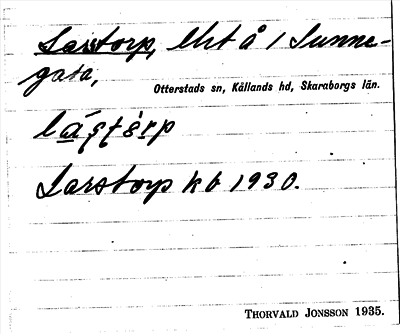 Larstorp, lht å 1 Sunne-
gata,
Otterstads sn, Kållands hd, Skaraborgs län.
Larstorp kb 1930.
THORVALD JONSSON 1935.